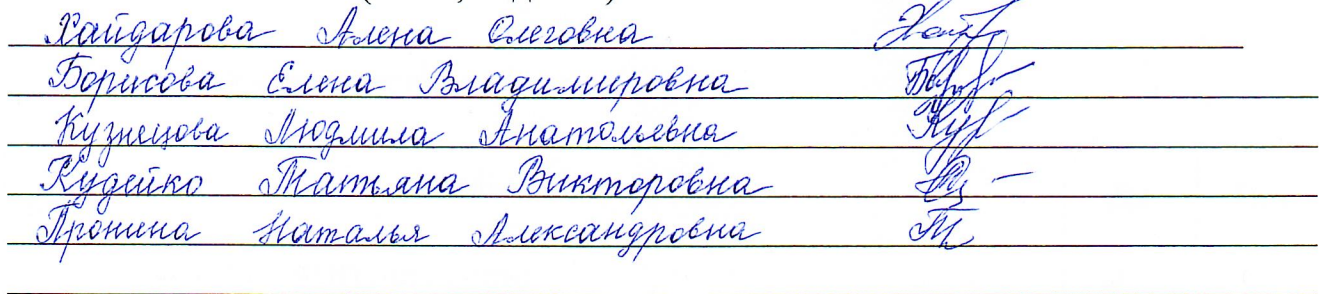 Хайдарова Алена Олеговна
Борисова Елена Владимировна
Кузнецова Людмила Анатольевна
Кудейко Татьяна Викторовна
Пронина Наталья Александровна